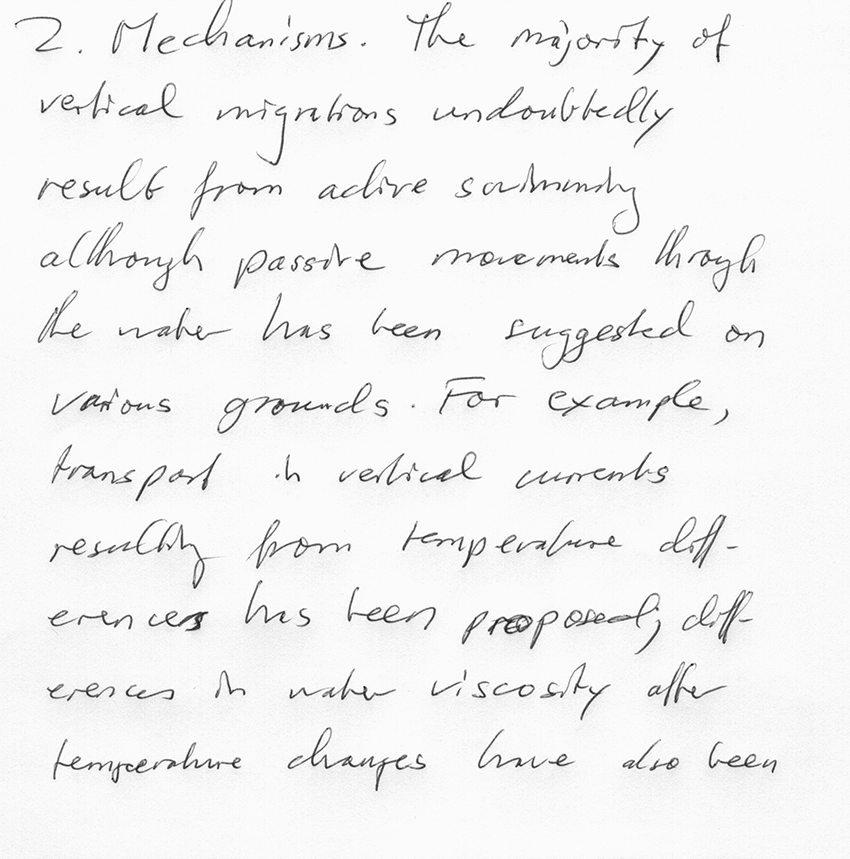 2. Mechanisms. The majority of
vertical migrations undoubtedly
result from active swimming
although passive movements through
the water has been suggested on
various grounds. For example,
transport in vertical currents
resulting from temperature diff-
erences has been proposed; diff-
erences in water viscosity after
temperature changes have also been